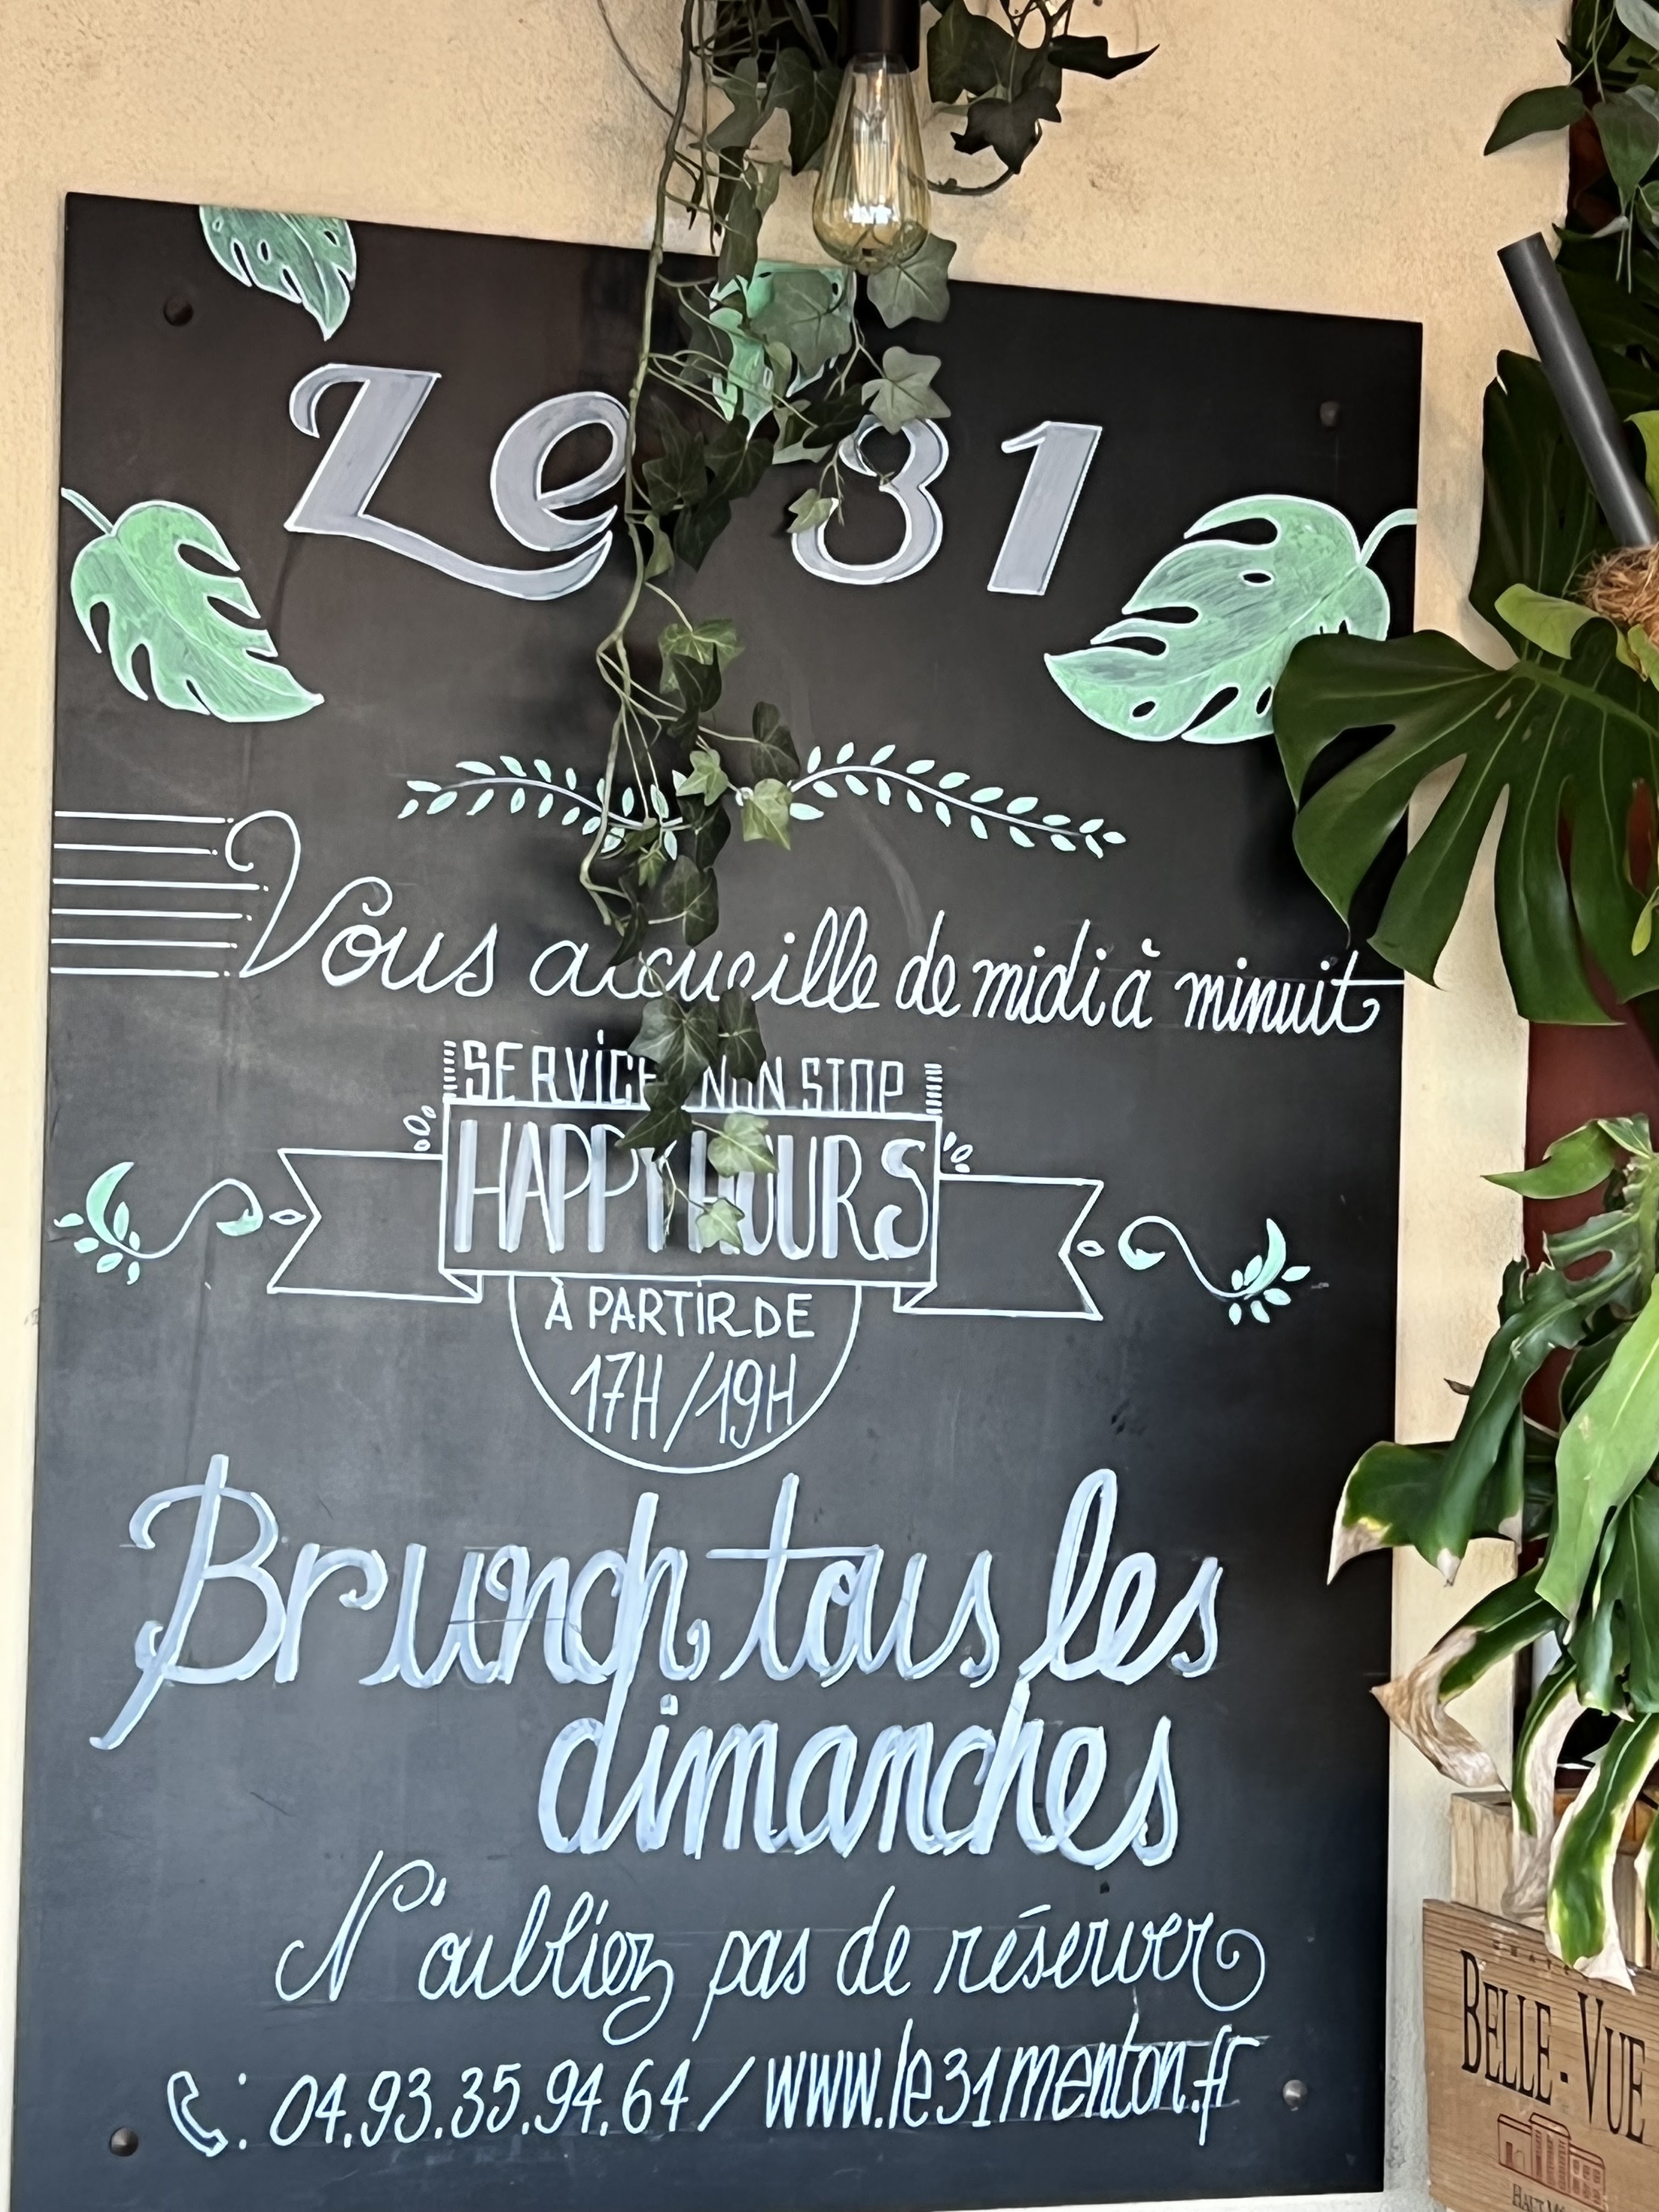 Le 31
Vous accueille de midi à minuit
SERVICE NON STOP
HAPPY HOURS
À PARTIR DE
17H / 19H
Brunch tous les
dimanches
N'oubliez pas de réserver
: 04.93.35.94.64 / www.le31menton.fr
BELLE-VUE